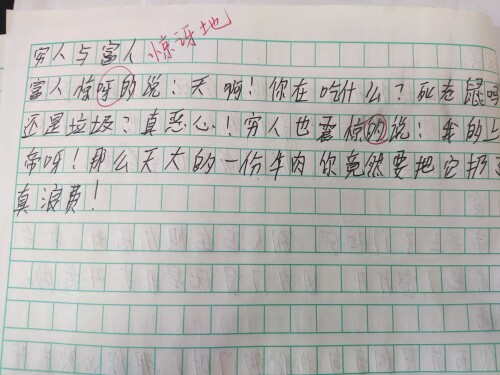 穷人与富人 惊讶地
富人惊呀的说：天啊！你在吃什么？死老鼠吗
还是垃圾？真恶心！穷人也震惊的说：我的上
帝呀！那么天大的一份牛肉你竟然要把它扔了
真浪费！